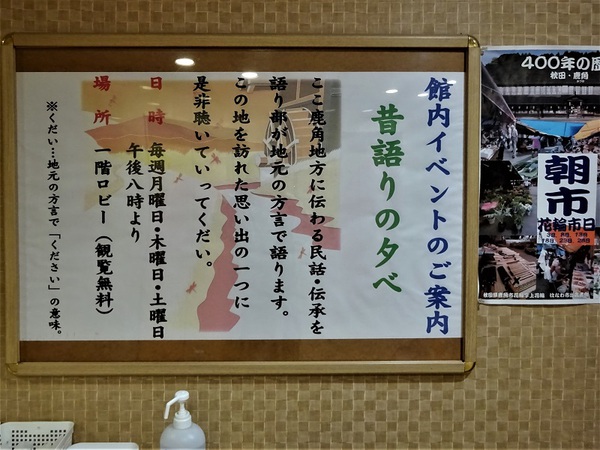 館内イベントのご案内
昔語りの夕べ
ここ鹿角地方に伝わる民話・伝承を
語り部が地元の方言で語ります。
この地を訪れた思い出の一つに
是非聴いていってくだい。
日時 毎週月曜日・木曜日・土曜日
午後八時より
場所 一階ロビー（観覧無料）
※くだい…地元の方言で「ください」の意味。
400年の歴
秋田・鹿角
朝市
花輪市日